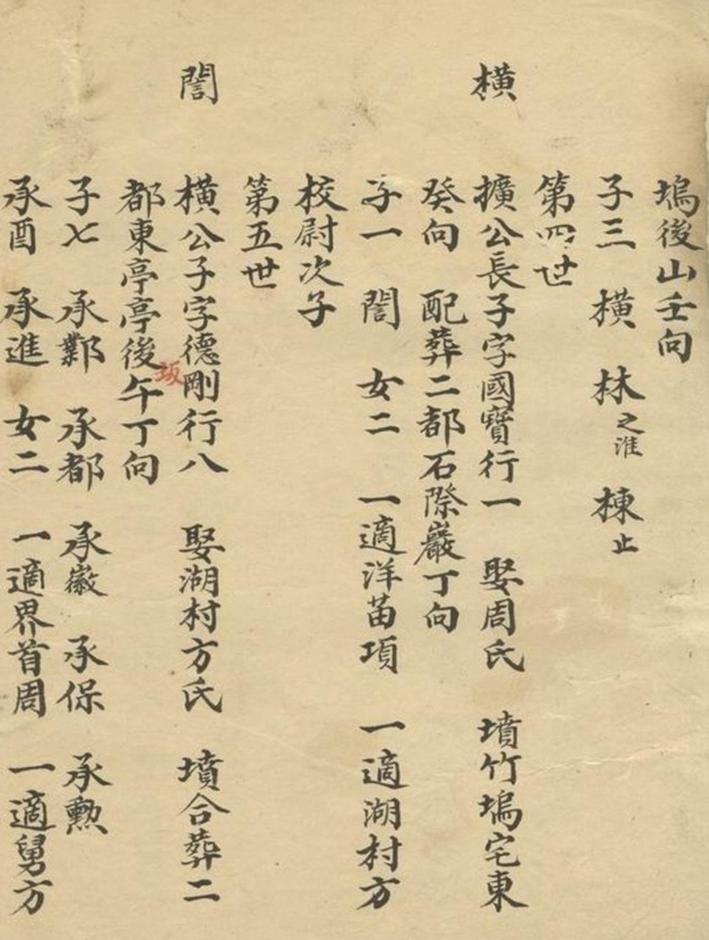 塢後山壬向
子三 橫 林之淮 棟止
第四世
橫 擴公長子字國寶行一 娶周氏 墳竹塢宅東
癸向 配葬二都石際巖丁向
子一 誾 女二 一適洋苗項 一適湖村方
校尉次子
第五世
誾 橫公子字德剛行八 娶湖村方氏 墳合葬二
都東亭亭後坂午丁向
子七 承鄴 承都 承徽 承保 承勲
承酉 承進 女二 一適界首周 一適舅方